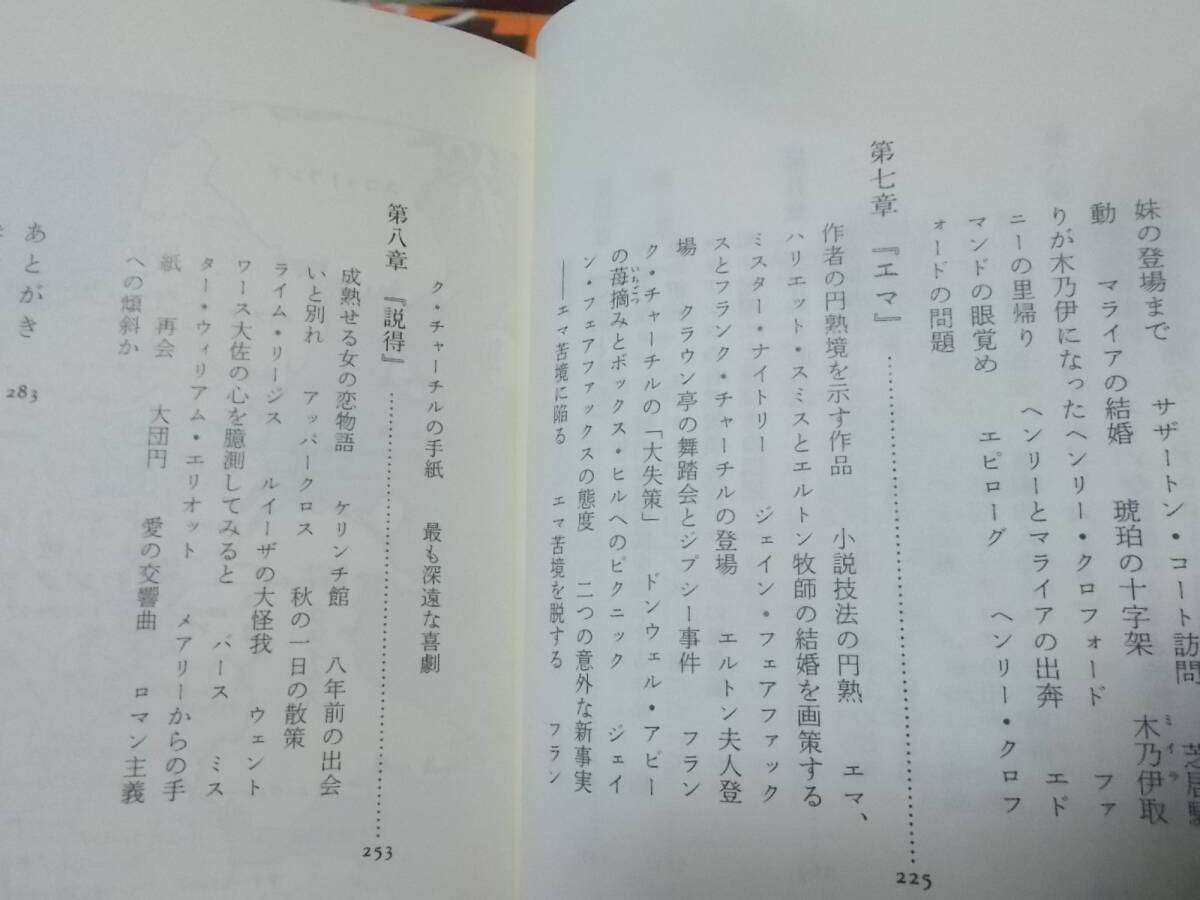 サザートン・コート訪問　芝居
妹の登場まで　マライアの結婚　琥珀の十字架　木乃伊取
ミイラ
動
りが木乃伊になったヘンリー・クロフォード　ファ
ニーの里帰り　ヘンリーとマライアの出奔　エド
マンドの眼覚め　エピローグ　ヘンリー・クロフ
ォードの問題
第七章　『エマ』……225
作者の円熟境を示す作品　小説技法の円熟　エマ、
ハリエット・スミスとエルトン牧師の結婚を画策する
ミスター・ナイトリー　ジェイン・フェアファック
スとフランク・チャーチルの登場　エルトン夫人登
場　クラウン亭の舞踏会とジプシー事件　フラン
ク・チャーチルの「大失策」　ドンウェル・アビー
の苺摘みとボックス・ヒルへのピクニック　ジェイ
いちごつ
ン・フェアファックスの態度　二つの意外な新事実
――エマ苦境に陥る　エマ苦境を脱する　フラン
ク・チャーチルの手紙　最も深遠な喜劇
第八章　『説得』……253
成熟せる女の恋物語　ケリンチ館　八年前の出会
いと別れ　アッパークロス　秋の一日の散策
ライム・リージス　ルイーザの大怪我　ウェント
ワース大佐の心を臆測してみると　バース　ミス
ター・ウィリアム・エリオット　メアリーからの手
紙　再会　大団円　愛の交響曲　ロマン主義
への傾斜か
あとがき　283